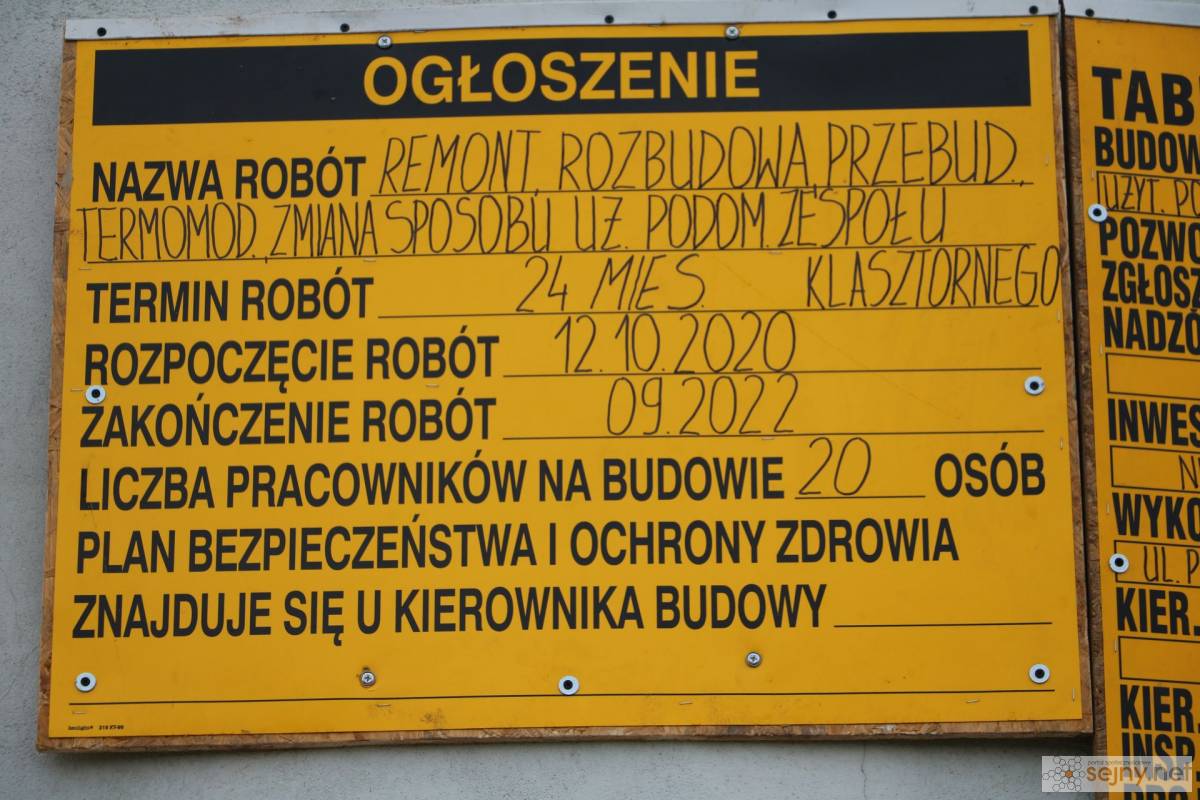 OGŁOSZENIE
NAZWA ROBÓT REMONT, ROZBUDOWA, PRZEBUD.,
TERMOMOD., ZMIANA SPOSOBU UŻ. PODOM. ZESPOŁU
TERMIN ROBÓT 24 MIES. KLASZTORNEGO
ROZPOCZĘCIE ROBÓT 12.10.2020
ZAKOŃCZENIE ROBÓT 09.2022
LICZBA PRACOWNIKÓW NA BUDOWIE 20 OSÓB
PLAN BEZPIECZEŃSTWA I OCHRONY ZDROWIA
ZNAJDUJE SIĘ U KIEROWNIKA BUDOWY
TAB
BUDOW
UŻYT. P
POZWO
ZGŁOSZ
NADZO
INWES
N
WYKO
UL. P
KIER.
KIER.
INSP
sejny.net